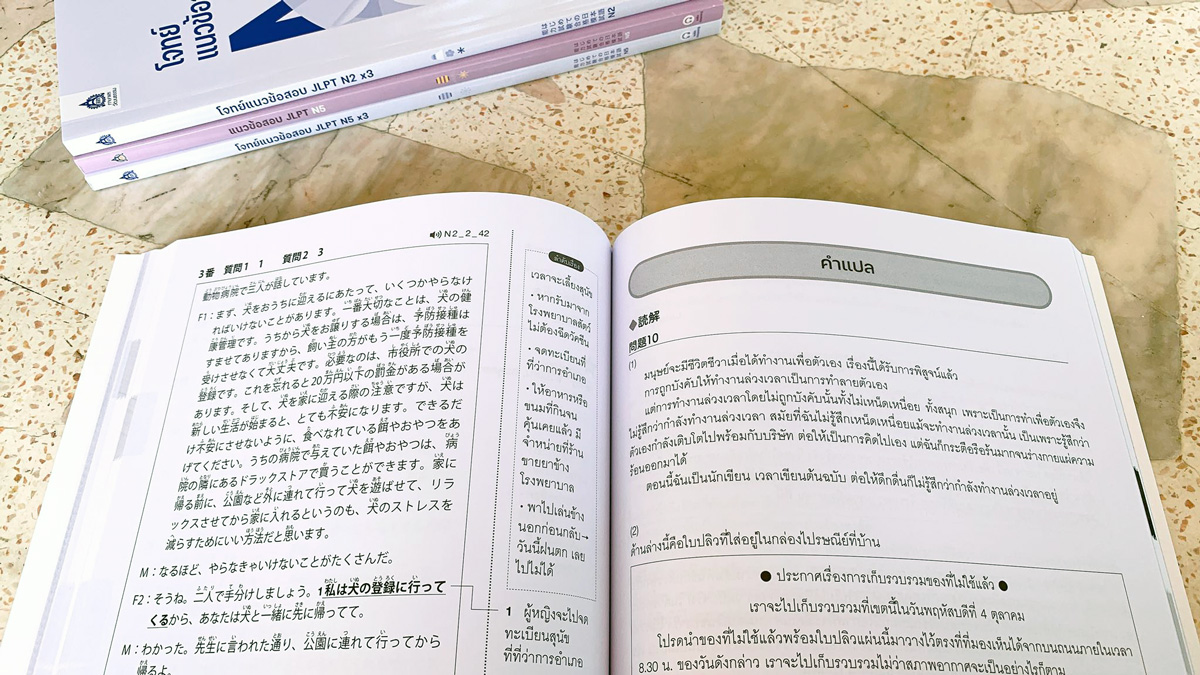 โจทย์
แนวข้อ
N
โจทย์แนวข้อสอบ JLPT N2 x3
แนวข้อสอบ JLPT N5
โจทย์แนวข้อสอบ JLPT N5 x3
N2_2_42
3番 質問1 1 質問2 3
動物病院で三人が話しています。
F1：まず、犬をおうちに迎えるにあたって、いくつかやらなけ
ればいけないことがあります。一番大切なことは、犬の健
康管理です。うちから犬をお譲りする場合は、予防接種は
すませてありますから、飼い主の方がもう一度予防接種を
受けさせなくて大丈夫です。必要なのは、市役所での犬の
登録です。これを忘れると20万円以下の罰金がある場合が
あります。そして、犬を家に迎える際の注意ですが、犬は
新しい生活が始まると、とても不安になります。できるだ
け不安にさせないように、食べなれている餌やおやつをあ
げてください。うちの病院で与えていた餌やおやつは、病
院の隣にあるドラックストアで買うことができます。家に
帰る前に、公園など外に連れて行って犬を遊ばせて、リラ
ックスさせてから家に入れるというのも、犬のストレスを
減らすためにいい方法だと思います。
M：なるほど、やらなきゃいけないことがたくさんだ。
F2：そうね。二人で手分けしましょう。1私は犬の登録に行って
くるから、あなたは犬と一緒に先に帰ってて。
M：わかった。先生に言われた通り、公園に連れて行ってから
帰るよ。
ลำดับเรื่อง
เวลาจะเลี้ยงสุนัข
・หากรับมาจาก
โรงพยาบาลสัตว์
ไม่ต้องฉีดวัคซีน
・จดทะเบียนที่
ที่ว่าการอำเภอ
・ให้อาหารหรือ
ขนมที่กินจน
คุ้นเคยแล้ว มี
จำหน่ายที่ร้าน
ขายยาข้าง
โรงพยาบาล
・พาไปเล่นข้าง
นอกก่อนกลับ→
วันนี้ฝนตก เลย
ไปไม่ได้
1 ผู้หญิงจะไปจด
ทะเบียนสุนัข
ที่ที่ว่าการอำเภอ
คำแปล
◆読解
問題10
(1)
มนุษย์จะมีชีวิตชีวาเมื่อได้ทำงานเพื่อตัวเอง เรื่องนี้ได้รับการพิสูจน์แล้ว
การถูกบังคับให้ทำงานล่วงเวลาเป็นการทำลายตัวเอง
แต่การทำงานล่วงเวลาโดยไม่ถูกบังคับนั้นทั้งไม่เหน็ดเหนื่อย ทั้งสนุก เพราะเป็นการทำเพื่อตัวเองจึง
ไม่รู้สึกว่ากำลังทำงานล่วงเวลา สมัยที่ฉันไม่รู้สึกเหน็ดเหนื่อยแม้จะทำงานล่วงเวลานั้น เป็นเพราะรู้สึกว่า
ตัวเองกำลังเติบโตไปพร้อมกับบริษัท ต่อให้เป็นการคิดไปเอง แต่ฉันก็กระตือรือร้นมากจนร่างกายแผ่ความ
ร้อนออกมาได้
ตอนนี้ฉันเป็นนักเขียน เวลาเขียนต้นฉบับ ต่อให้ดึกดื่นก็ไม่รู้สึกว่ากำลังทำงานล่วงเวลาอยู่
(2)
ด้านล่างนี้คือใบปลิวที่ใส่อยู่ในกล่องไปรษณีย์ที่บ้าน
● ประกาศเรื่องการเก็บรวบรวมของที่ไม่ใช้แล้ว ●
เราจะไปเก็บรวบรวมที่เขตนี้ในวันพฤหัสบดีที่ 4 ตุลาคม
โปรดนำของที่ไม่ใช้แล้วพร้อมใบปลิวแผ่นนี้มาวางไว้ตรงที่ที่มองเห็นได้จากบนถนนภายในเวลา
8.30 น. ของวันดังกล่าว เราจะไปเก็บรวบรวมไม่ว่าสภาพอากาศจะเป็นอย่างไรก็ตาม